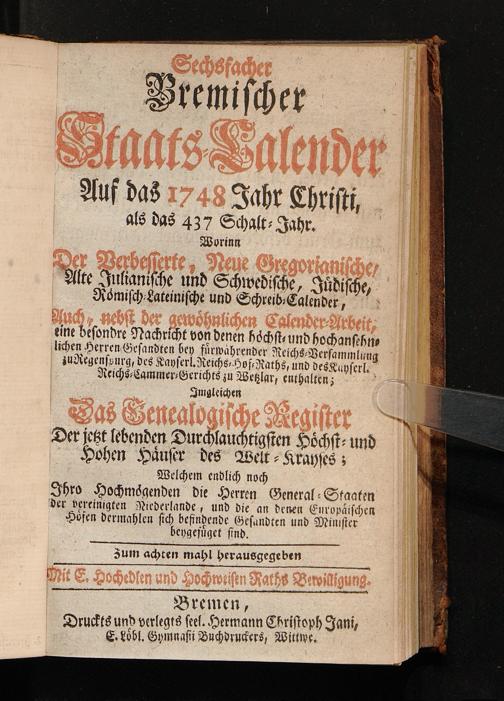 Sechsfacher
Bremischer
Staats-Calender
Auf das 1748 Jahr Christi,
als das 437 Schalt-Jahr.
Worinn
Der Verbesserte, Neue Gregorianische,
Alte Julianische und Schwedische, Jüdische,
Römisch-Lateinische und Schreib-Calender,
Auch, nebst der gewöhnlichen Calender-Arbeit,
eine besondre Nachricht von denen höchst- und hochansehn-
lichen Herren Gesandten bey fürwährender Reichs-Versammlung
zu Regenspurg, des Kayserl. Reichs-Hof-Raths, und des Kayserl.
Reichs-Cammer-Gerichts zu Wetzlar, enthalten;
Imgleichen
Das Genealogische Register
Der jetzt lebenden Durchlauchtigsten Höchst- und
Hohen Häuser des Welt-Krayses;
Welchem endlich noch
Ihro Hochmögenden die Herren General-Staaten
der vereinigten Niederlande, und die an denen Europäischen
Höfen dermahlen sich befindende Gesandten und Minister
beygefüget sind.
Zum achten mahl herausgegeben
Mit E. Hochedlen und Hochweisen Raths Bewilligung.
Bremen,
Druckts und verlegts seel. Hermann Christoph Jani,
E. Löbl. Gymnasii Buchdruckers, Wittwe.